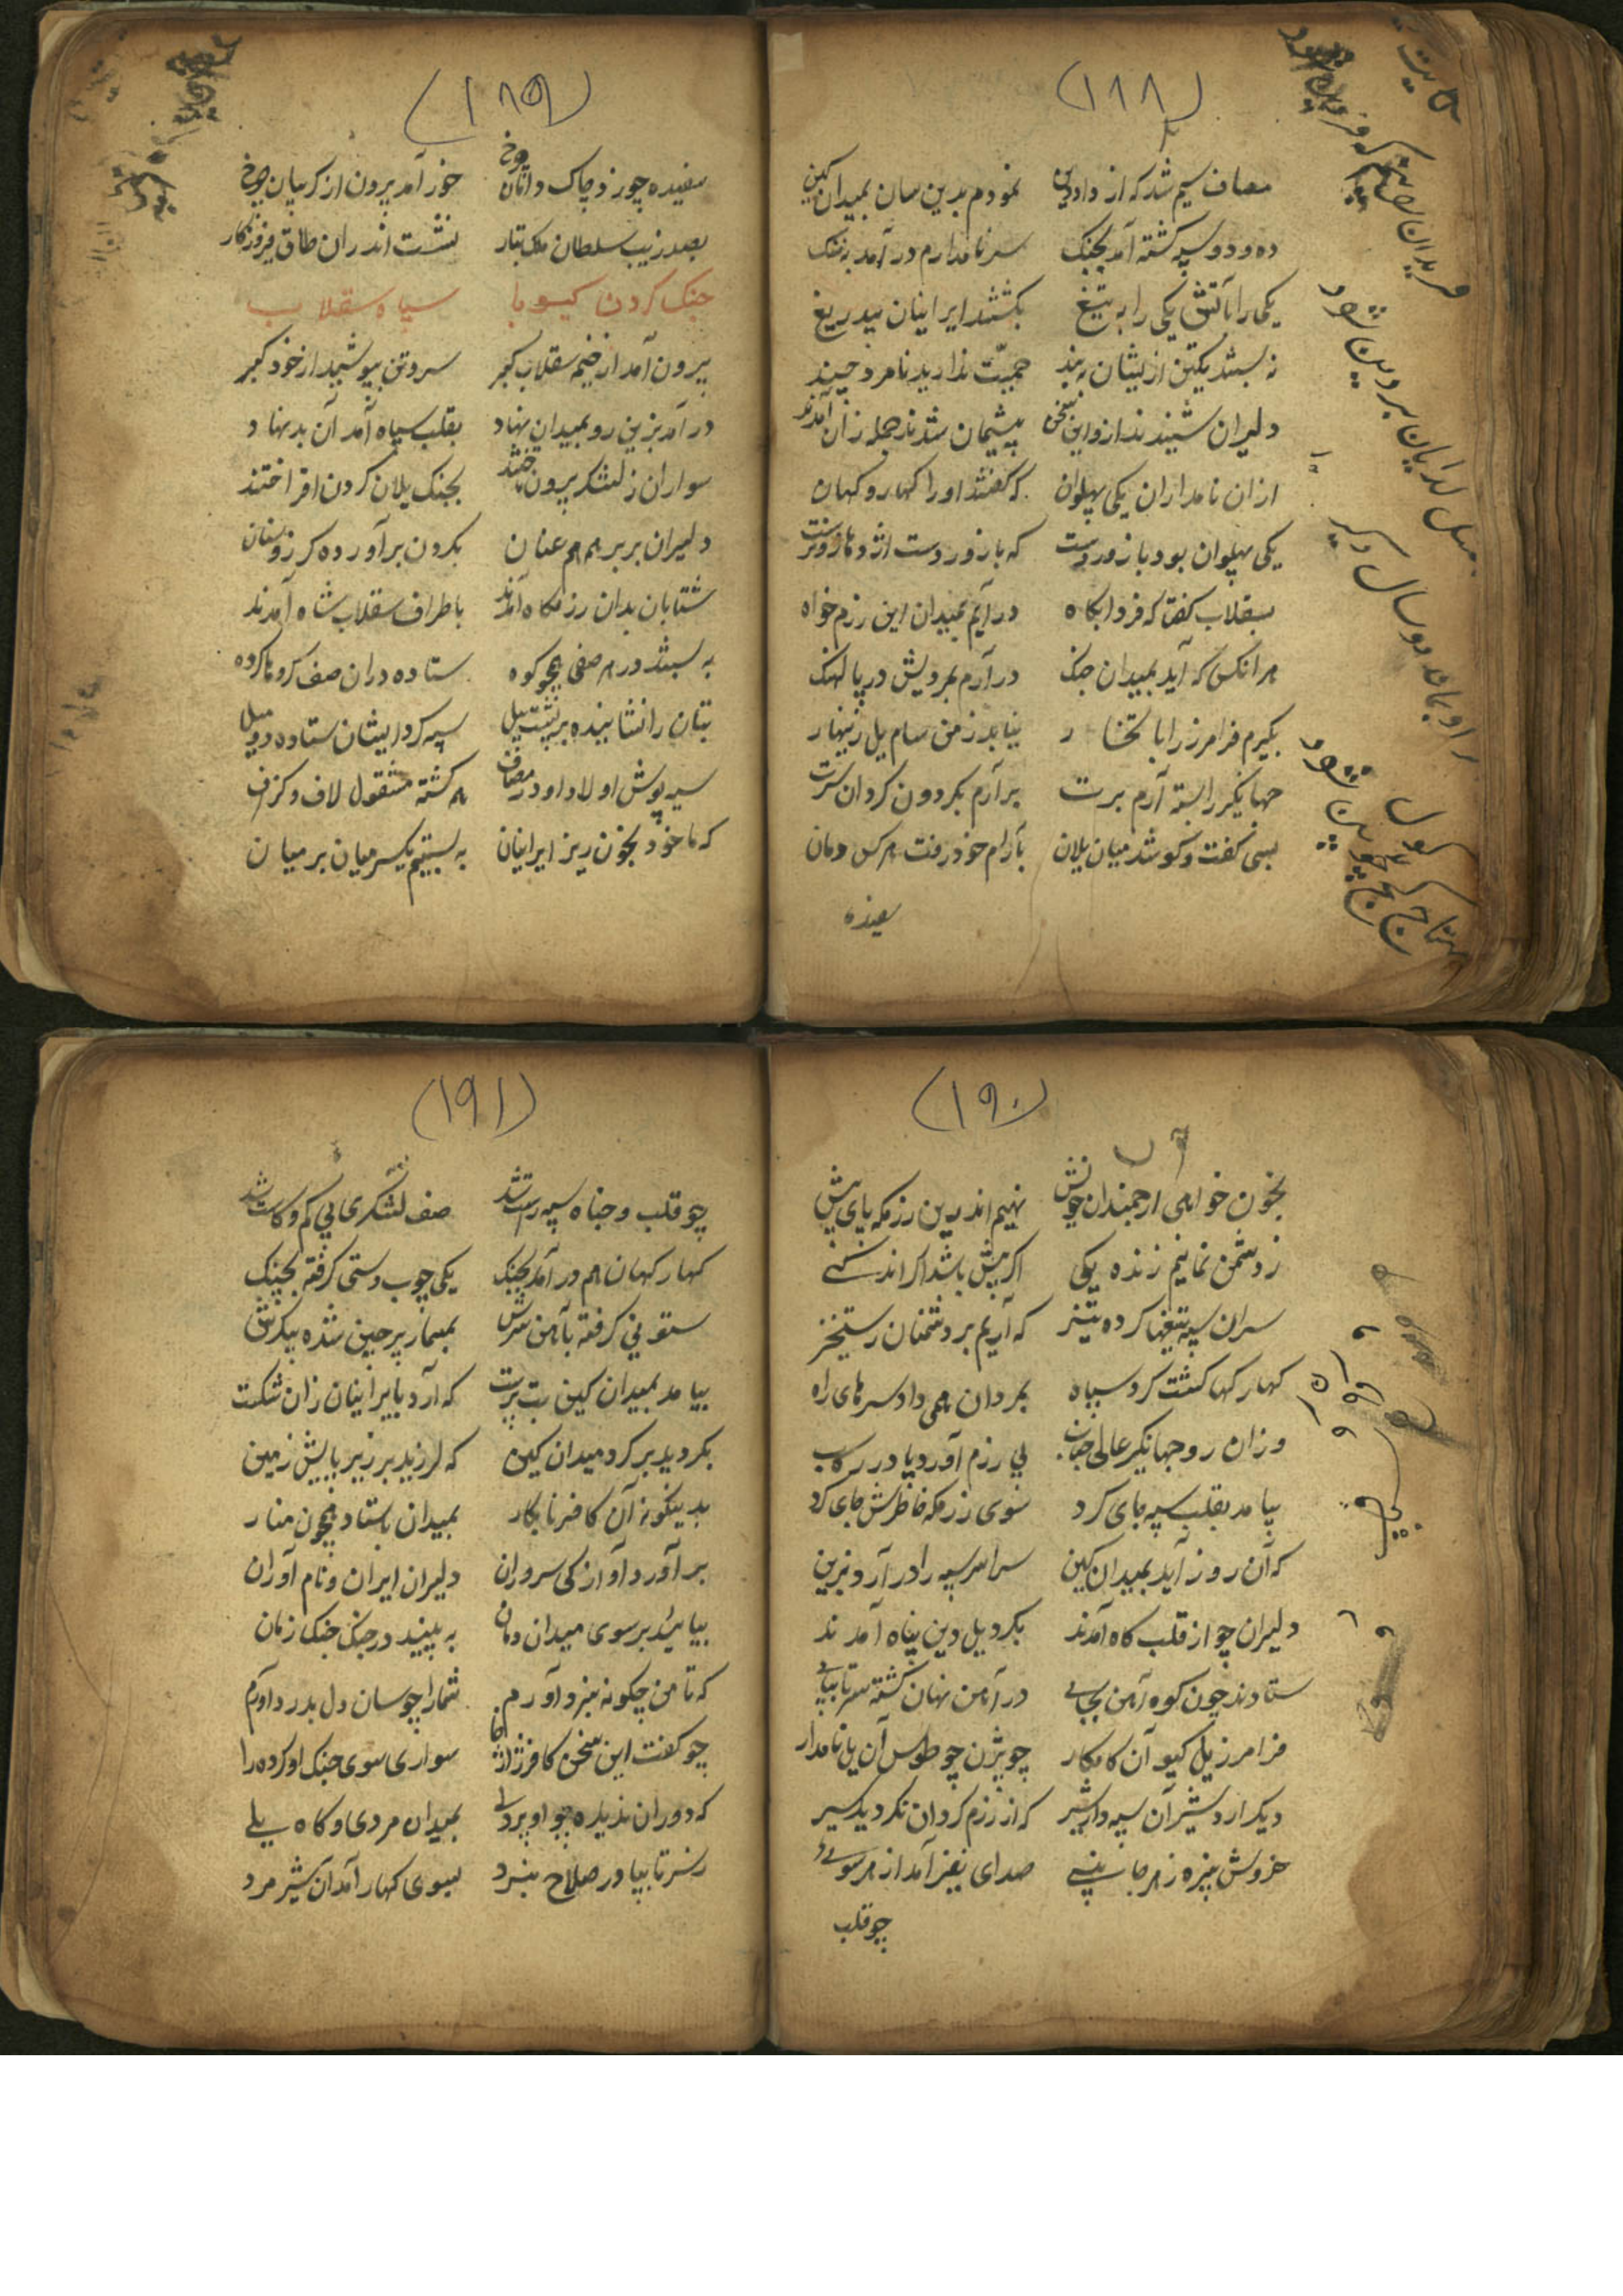 (۱۸۸)
مصاف سیم شد که از داد دین نمودم بدین سان بمیدان کین
ده و دو سپه کشته آمد بجنک سر نامدارم در آمد به ننک
یکی را بآتش یکی را به تیغ بکشتند ایرانیان بیدریغ
نه بستند یکتن ازیشان به بند حمیّت ندارید نامرد چند
دلیران شنیدند ازو این سخن پشیمان شدند از جمله زان آمدند
ازان نامداران یکی پهلوان که کفتند او را کهار و کهان
یکی پهلوان بود با زور دست که با زور دست اژدها روست
بسقلاب کفتا که فردا بکاه درآیم بمیدان این رزم خواه
هر انکس که آید بمیدان جنک در آرم بمرویش در پالهنک
بکیرم فرامرز را با تخار نیابد ز من سام یل زینهار
جهانکیر را بسته آرم برت برآرم بکردون کردان سرت
بسی کفت و کو شد میان یلان بآرام خود رفت هر کس دمان
سفیده
(۱۸۹)
سفیده چو زد چاک دامان خور آمد برون از کریبان چرخ
بصد زیب سلطان ملک تبار نشست اندران طاق فیروزکار
جنک کردن کیو با سپاه سقلاب
بیرون آمد از خیمه سقلاب کبر سر و تن بپوشید از خود کبر
در آمد بزین رو بمیدان نهاد بقلب سپاه آمد آن بد نهاد
سواران ز لشکر بیرون تاختند بجنک یلان کردن افراختند
دلیران بربر هم هم عنان بکردن برآورده کرز و سنان
شتابان بدان رزمکاه آمدند باطراف سقلاب شاه آمدند
به بستند در هر صفی همچو کوه ستاده دران صف کروها کروه
بتان را نشانیده بر پشت پیل سپه کرد ایشان ستاده دو میل
سیه پوش اولاد او در مصاف همه کشته مشغول لاف و کزاف
که ما خود بخون ریز ایرانیان به بستیم یکسر میان بر میان
(۱۹۰)
بخون خواهی ارجمندان خویش نهیم اندرین رزمکه پای پیش
ز دشمن نمانیم زنده یکی اکر بیش باشد اکر اندکی
سران سپه تیغها کرده تیز که آریم بر دشمنان رستخیز
کهار کها کشت کرد سپاه بمردان همی داد سرهای راه
وزان رو جهانکیر عالی جناب پی رزم آورد پا در رکاب
بیامد بقلب سپه جای کرد سوی رزمکه خاطرش جای کرد
که آن روز آید بمیدان کین سراسر سپه را در آرد بزین
دلیران چو از قلب کاه آمدند بکرد یل دین پناه آمدند
ستادند چون کوه آهن بجای در آهن نهان کشته سر تا بپای
فرامرز یل کیو آن کامکار چو بیژن چو طوس آن یل نامدار
دیکر اردشیر آن سپه دار شیر که از رزم کردان نکردید سیر
خروش نبیره ز هر جانبی صدای نفیر آمد از هر سوی
چو قلب
(۱۹۱)
چو قلب و جناه سپه راست شد صف لشکری بی کم و کاست شد
کهار کهان هم در آمد بجنک یکی چوب دستی کرفته بجنک
ستونی کرفته بآهن سرش بمسمار پر چین شده پیکرش
بیامد بمیدان کین بت پرست که آرد بایرانیان زان شکست
بکردید بر کرد میدان کین که لرزید بر زیر پایش زمین
بدینکونه آن کافر نابکار بمیدان باستاد همچون منار
برآورد آواز کی سروران دلیران ایران و نام آوران
بیائید بر سوی میدان دمان به بینید در جنک جنک زمان
که تا من چکونه نبرد آورم شما را چوسان دل بدرد آورم
چو کفت این سخن کافر ژاژخا سواری سوی جنک او کرده را
که دوران ندیده چو او پر دلی بمیدان مردی و کاه یلی
ز سر تا بپا در صلاح نبرد بسوی کهار آمد آن شیر مرد